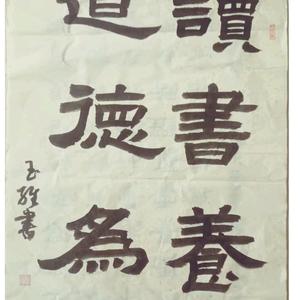 讀書養
道德為
玉維書